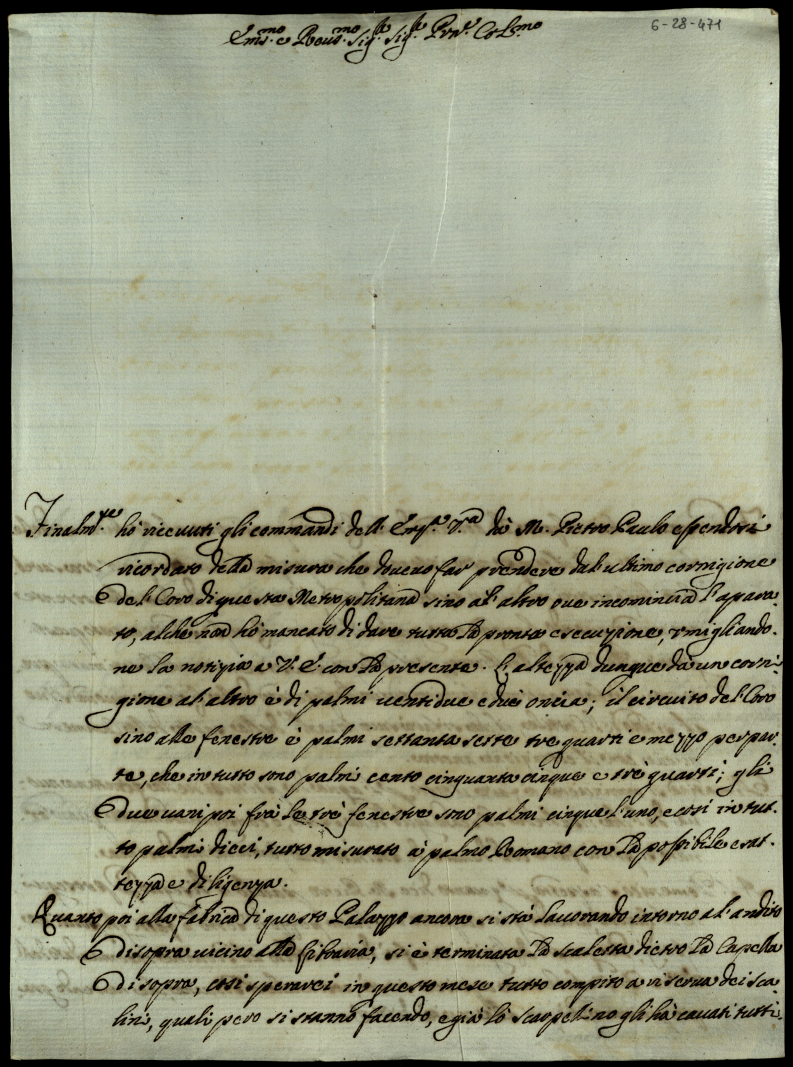 6-28-471
Em.mo e Reuer.mo Sig.r Sig.r Pron.e Col.mo
Finalm.te hò riceuuti gli commandi dell' Em.a V.ra dà M. Pietro Paulo essendosi
ricordato della misura che doueuo far prendere dal' ultimo cornigione
del Coro di questa Metropolitana sino al' altro oue incomincia l'appara-
to, al che non hò mancato di dare tutta la pronta esecuzione, umigliando-
ne la notizia a V. E. con la presente. L'altezza dunque da un corni-
gione al' altro è di palmi uentidue e due oncia; il circuito del Coro
sino alle fenestre è palmi settanta sette tre quarti e mezzo per par-
te, che in tutto sono palmi cento cinquanta cinque e trè quarti; gli
due uani poi frà le trè fenestre sono palmi cinque l'uno, e così in tut-
to palmi dieci, tutto misurato à palmo Romano con la possibile esat-
tezza e diligenza.
Quanto poi alla fabrica di questo Palazzo ancora si stà lauorando intorno al' andito
di sopra uicino alla libraria, si è terminata la scaletta dietro la Capella
di sopra, e così sperarei in questo mese tutto compito a riserua dei sca-
lini, quali però si stanno facendo, e già lo scarpellino gli hà cauati tutti